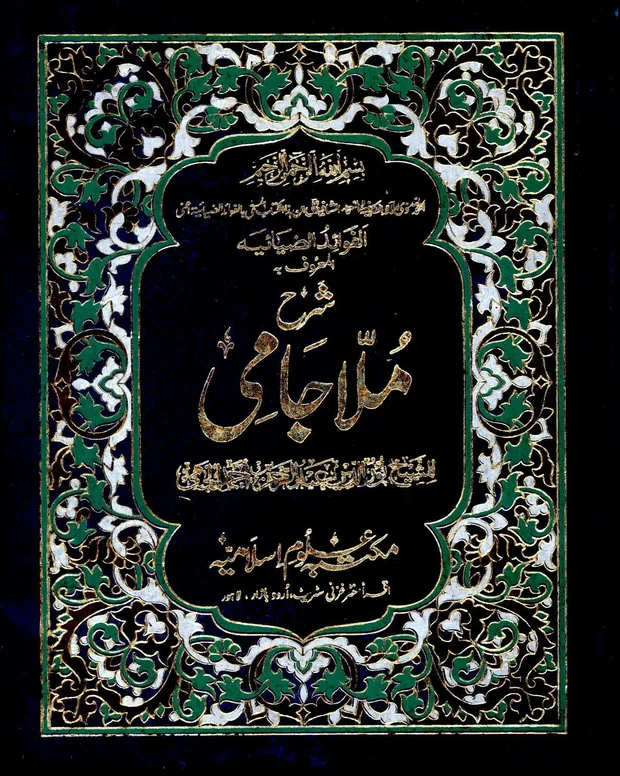 بسم الله الرحمن الرحيم
الفوائد الضيائيه
المعروف به
شرح
مُلّا جَامِی
للشيخ نور الدين عبد الرحمن الجامي
مکتبہ علوم اسلامیہ
اقرأ سنٹر غزنی سٹریٹ، اردو بازار، لاہور